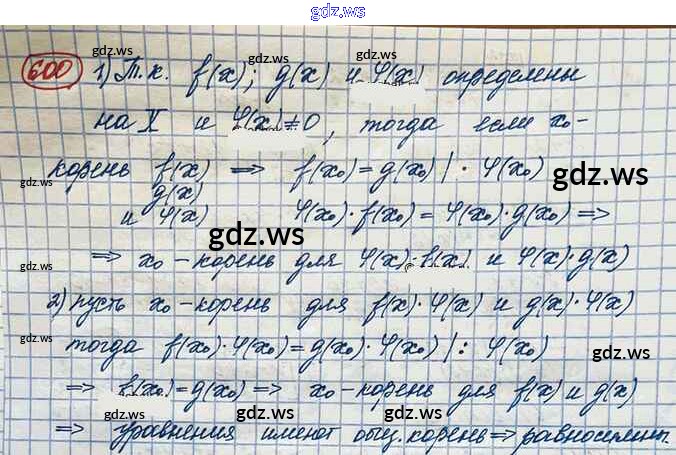 gdz.ws
600 1) Т.к. f(x); g(x) и φ(x) определены
на X и φ(x)≠0, тогда если x₀-
корень f(x) => f(x₀) = g(x₀) | · φ(x₀)
g(x)
и φ(x) φ(x₀)·f(x₀) = φ(x₀)·g(x₀) =>
=> x₀ - корень для φ(x)·f(x) и φ(x)·g(x)
2) пусть x₀ - корень для f(x)·φ(x) и g(x)·φ(x)
тогда f(x₀)·φ(x₀) = g(x₀)·φ(x₀) | : φ(x₀)
=> f(x₀) = g(x₀) => x₀ - корень для f(x) и g(x)
=> уравнения имеют общ. корень => равносильны
gdz.ws
gdz.ws
gdz.ws
gdz.ws
gdz.ws
gdz.ws
gdz.ws
gdz.ws
gdz.ws
gdz.ws
gdz.ws